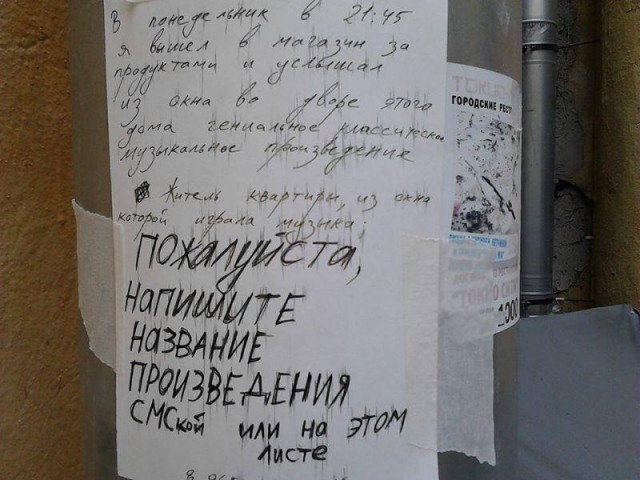 В понедельник в 21:45
я вышел в магазин за
продуктами и услышал
из окна во дворе этого
дома гениальное классическое
музыкальное произведение
Житель квартиры, из окна
которой играла музыка,
ПОЖАЛУЙСТА,
НАПИШИТЕ
НАЗВАНИЕ
ПРОИЗВЕДЕНИЯ
СМСкой или на ЭТОМ
листе
ГОРОДСКИЕ